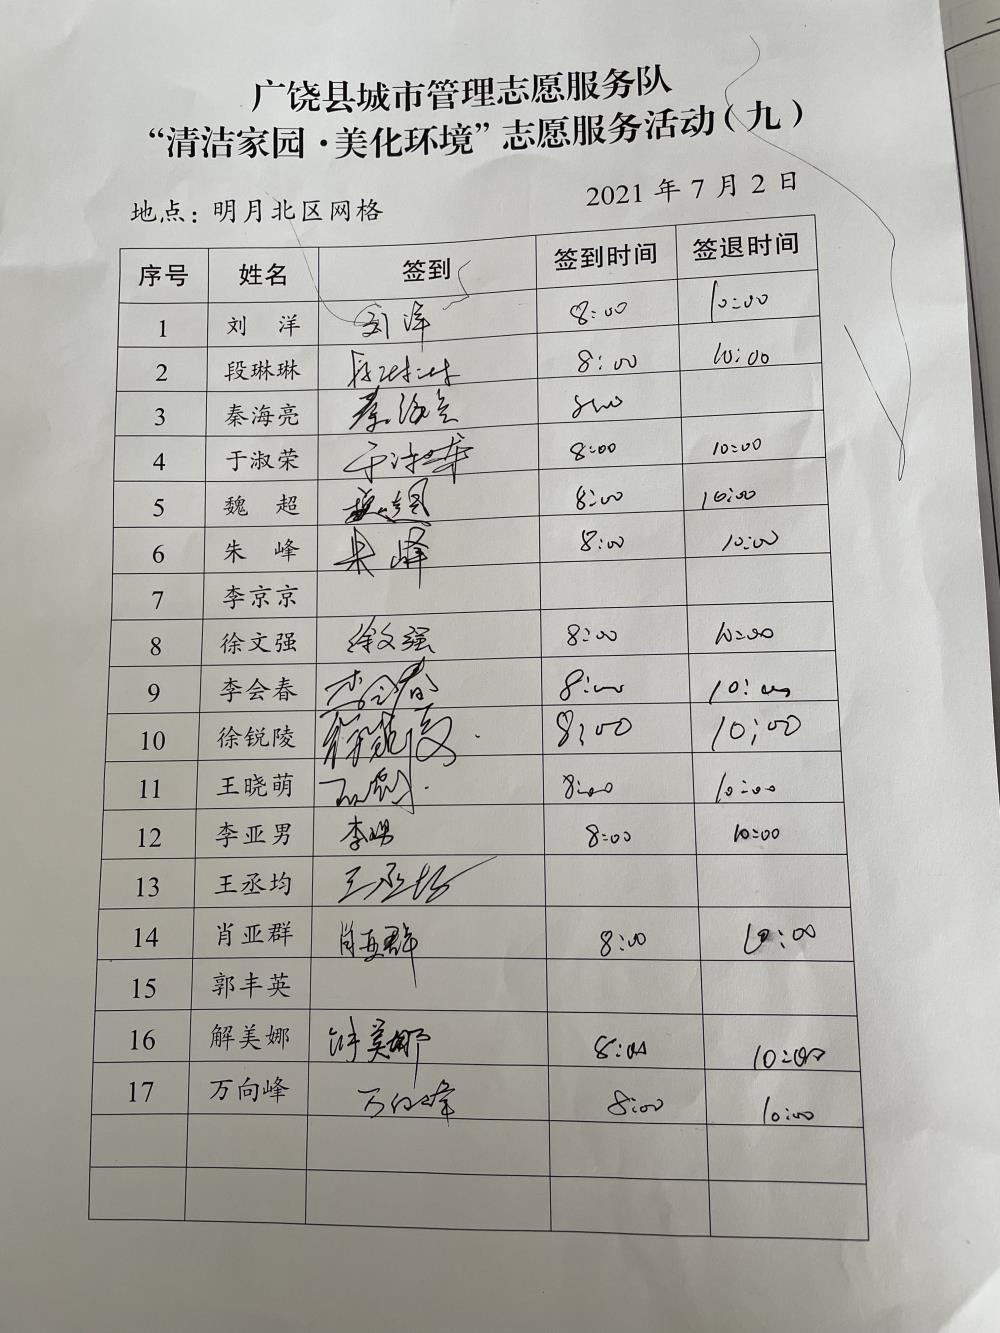 广饶县城市管理志愿服务队
“清洁家园·美化环境”志愿服务活动（九）
地点：明月北区网格 2021年7月2日
序号 姓名 签到 签到时间 签退时间
1 刘 洋 刘洋 8:00 10:00
2 段琳琳 段琳琳 8:00 10:00
3 秦海亮 秦海亮 8:00
4 于淑荣 于淑荣 8:00 10:00
5 魏 超 魏超 8:00 10:00
6 朱 峰 朱峰 8:00 10:00
7 李京京
8 徐文强 徐文强 8:00 10:00
9 李会春 李会春 8:00 10:00
10 徐锐陵 徐锐陵 8:00 10:00
11 王晓萌 8:00 10:00
12 李亚男 李亚男 8:00 10:00
13 王丞均 王丞均
14 肖亚群 肖亚群 8:00 10:00
15 郭丰英
16 解美娜 解美娜 8:00 10:00
17 万向峰 万向峰 8:00 10:00